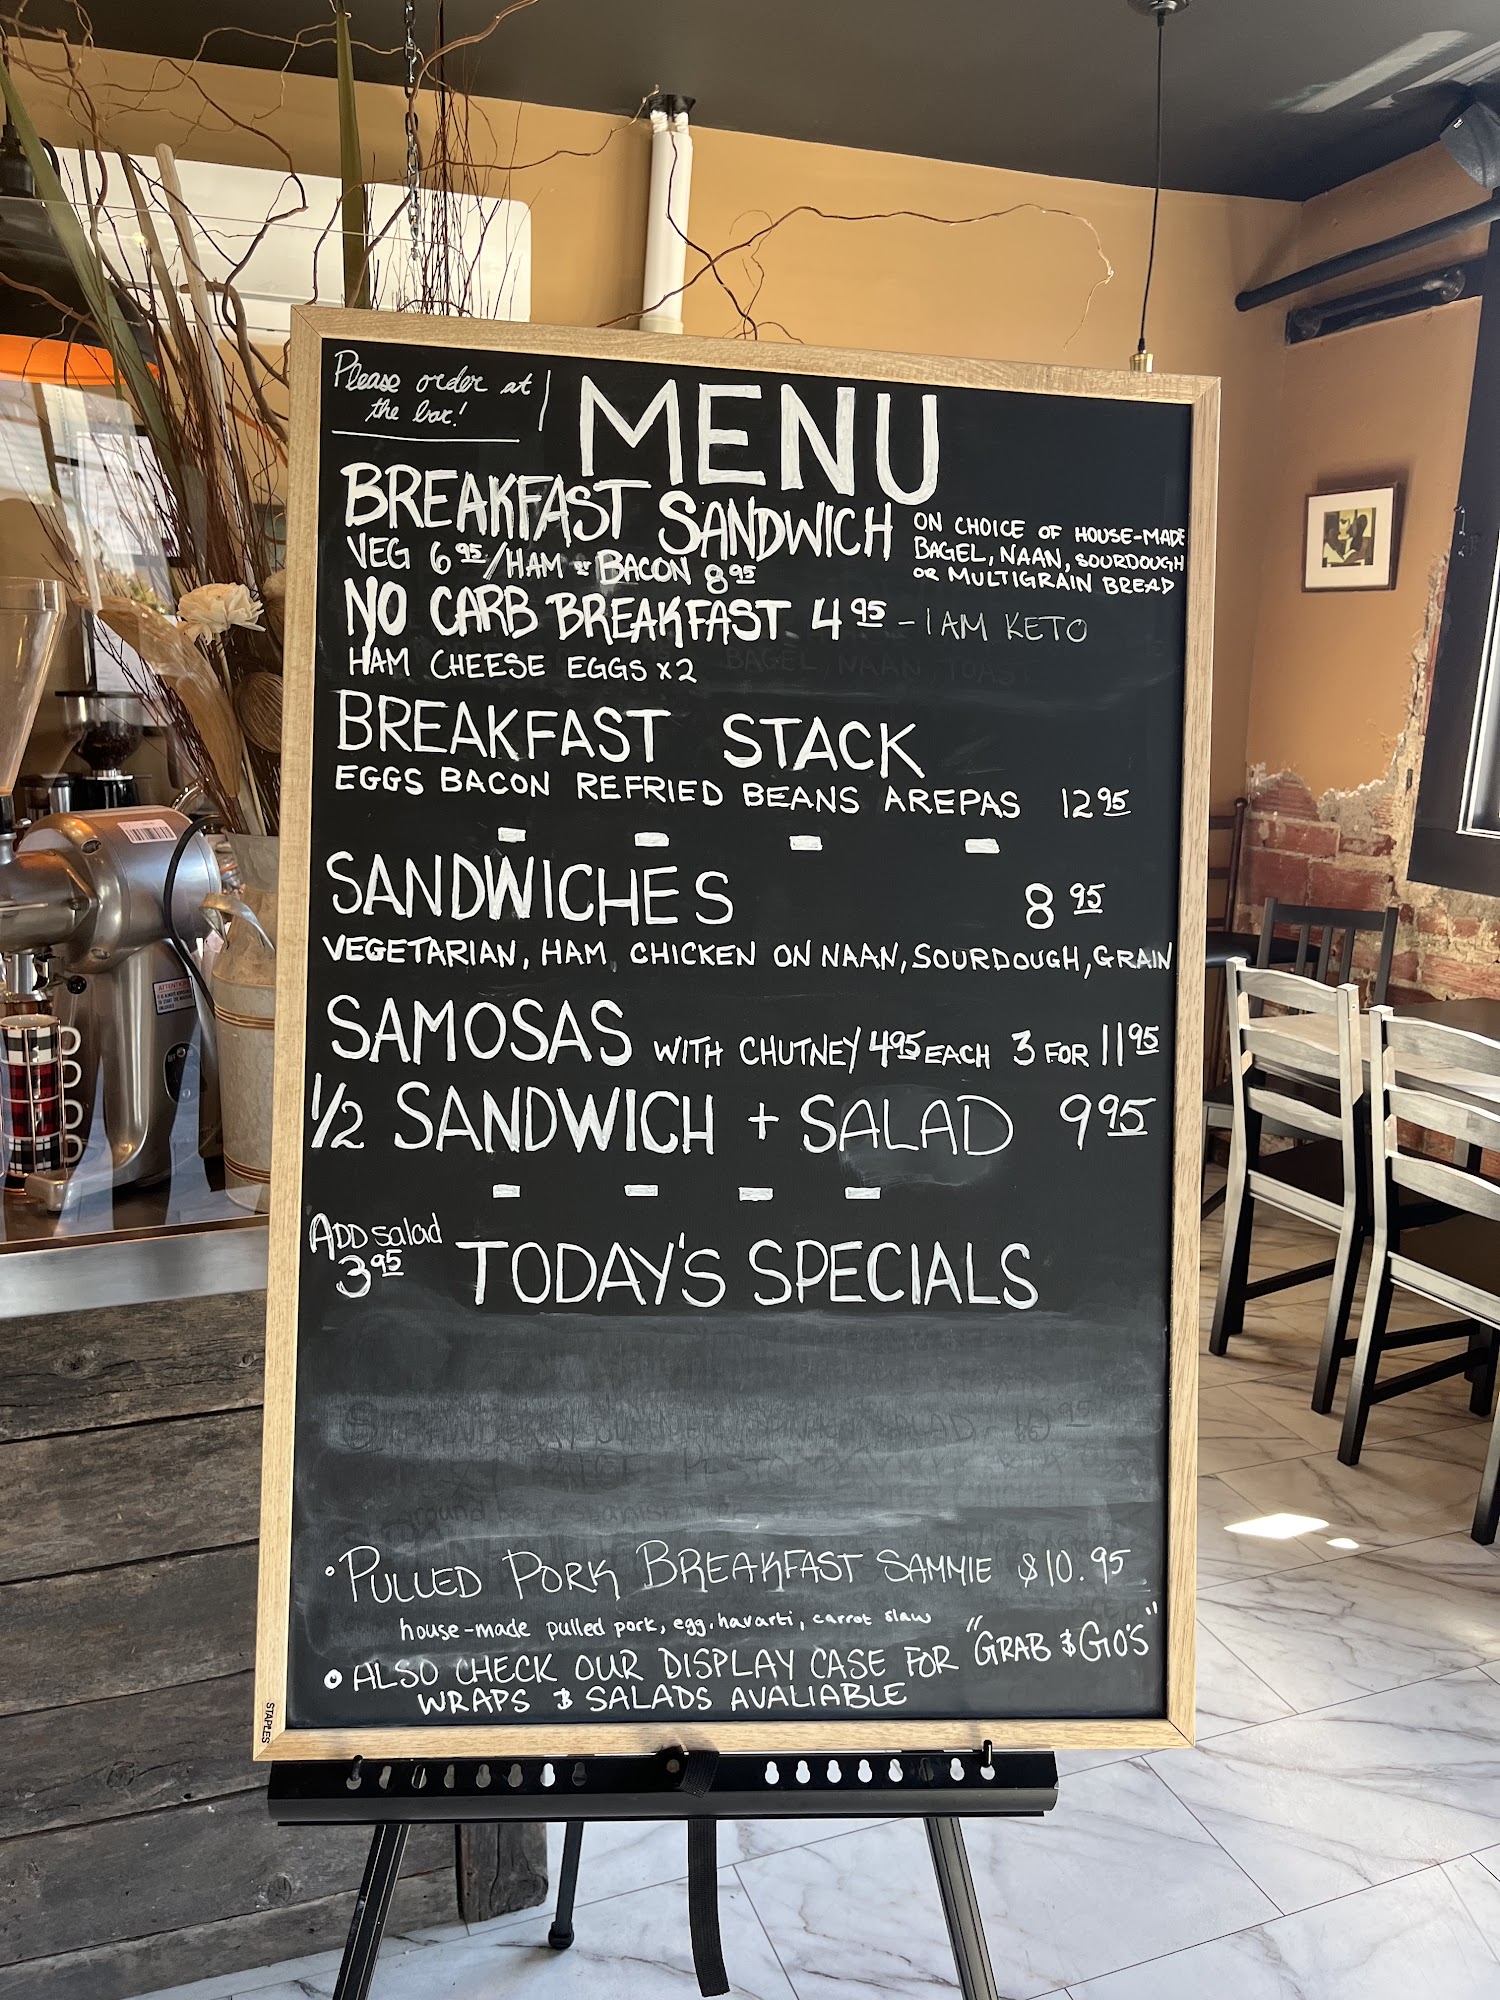 Please order at
the bar!
MENU
BREAKFAST SANDWICH
ON CHOICE OF HOUSE-MADE
BAGEL, NAAN, SOURDOUGH
OR MULTIGRAIN BREAD
VEG 6 95/HAM or BACON 8 95
NO CARB BREAKFAST 4 95 - I AM KETO
HAM CHEESE EGGS x 2
BAGEL, NAAN, TOAST
BREAKFAST STACK
EGGS BACON REFRIED BEANS AREPAS 12 95
SANDWICHES 8 95
VEGETARIAN, HAM, CHICKEN ON NAAN, SOURDOUGH, GRAIN
SAMOSAS WITH CHUTNEY 4 95 EACH 3 FOR 11 95
1/2 SANDWICH + SALAD 9 95
ADD salad
3 95
TODAY'S SPECIALS
• PULLED PORK BREAKFAST SAMMIE $10.95
house-made pulled pork, egg, havarti, carrot slaw
• ALSO CHECK OUR DISPLAY CASE FOR "GRAB & GO'S"
WRAPS & SALADS AVALIABLE
STAPLES
ATTENTION